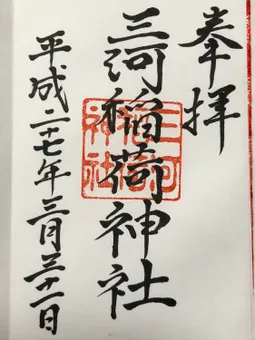 奉拝
三河稲荷神社
三河稲荷神社
平成二十七年三月三十一日